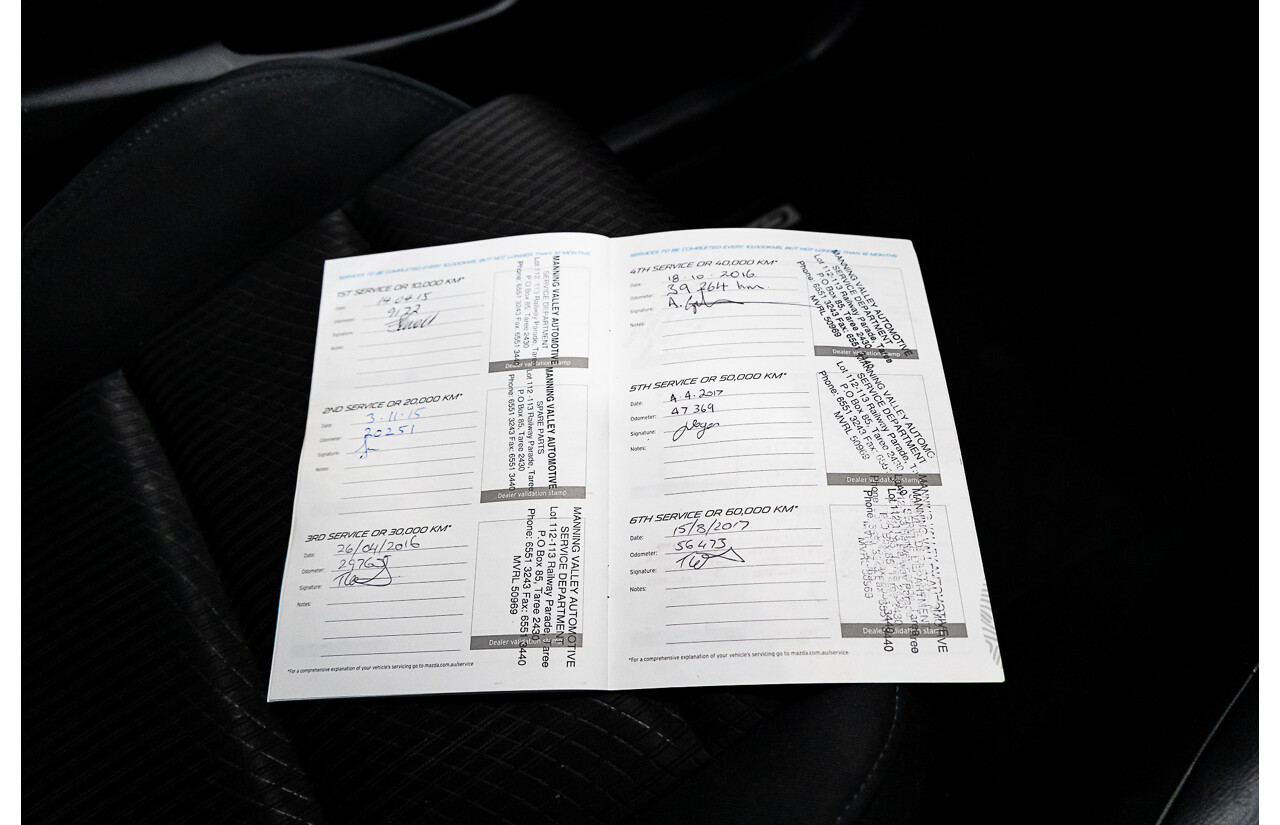 SERVICES TO BE COMPLETED EVERY 10,000KMS, BUT NOT LONGER THAN 12 MONTHS
1ST SERVICE OR 10,000 KM*
Date: 14·04·15
Odometer: 9122
Signature:
Notes:
MANNING VALLEY AUTOMOTIVE
SERVICE DEPARTMENT
Lot 112-113 Railway Parade, Taree
P O Box 85, Taree 2430
Phone: 6551 3243 Fax: 6551 3440
Dealer validation stamp
2ND SERVICE OR 20,000 KM*
Date: 3·11·15
Odometer: 20251
Signature:
Notes:
MANNING VALLEY AUTOMOTIVE
SPARE PARTS
Lot 112-113 Railway Parade, Taree
P O Box 85, Taree 2430
Phone: 6551 3243 Fax: 6551 3440
Dealer validation stamp
3RD SERVICE OR 30,000 KM*
Date: 26/04/2016
Odometer:
Signature:
Notes:
MANNING VALLEY AUTOMOTIVE
SERVICE DEPARTMENT
Lot 112-113 Railway Parade, Taree
P O Box 85, Taree 2430
Phone: 6551 3243 Fax: 6551 3440
MVRL 50969
Dealer validation stamp
*For a comprehensive explanation of your vehicle's servicing go to mazda.com.au/service
SERVICES TO BE COMPLETED EVERY 10,000KMS, BUT NOT LONGER THAN 12 MONTHS
4TH SERVICE OR 40,000 KM*
Date: 18·10·2016
Odometer: 39 264 km.
Signature:
Notes:
MANNING VALLEY AUTOMOTIVE
SERVICE DEPARTMENT
Lot 112-113 Railway Parade, Taree
P O Box 85, Taree 2430
Phone: 6551 3243 Fax: 6551
MVRL 50969
Dealer validation stamp
5TH SERVICE OR 50,000 KM*
Date: 4.4.2017
Odometer: 47 369
Signature:
Notes:
MANNING VALLEY AUTOMO
SERVICE DEPARTMENT
Lot 112-113 Railway Parade,
P O Box 85, Taree 2430
Phone: 6551 3243 Fax:
MVRL 50969
Dealer validation stamp
6TH SERVICE OR 60,000 KM*
Date: 15/8/2017
Odometer: 56473
Signature:
Notes:
Dealer validation stamp
*For a comprehensive explanation of your vehicle's servicing go to mazda.com.au/service